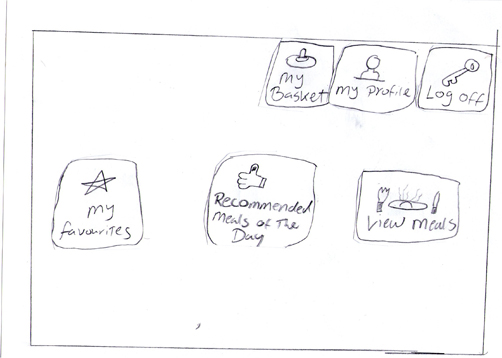 my
Basket
my Profile
Log off
my
favourites
Recommended
meals of The
Day
View meals